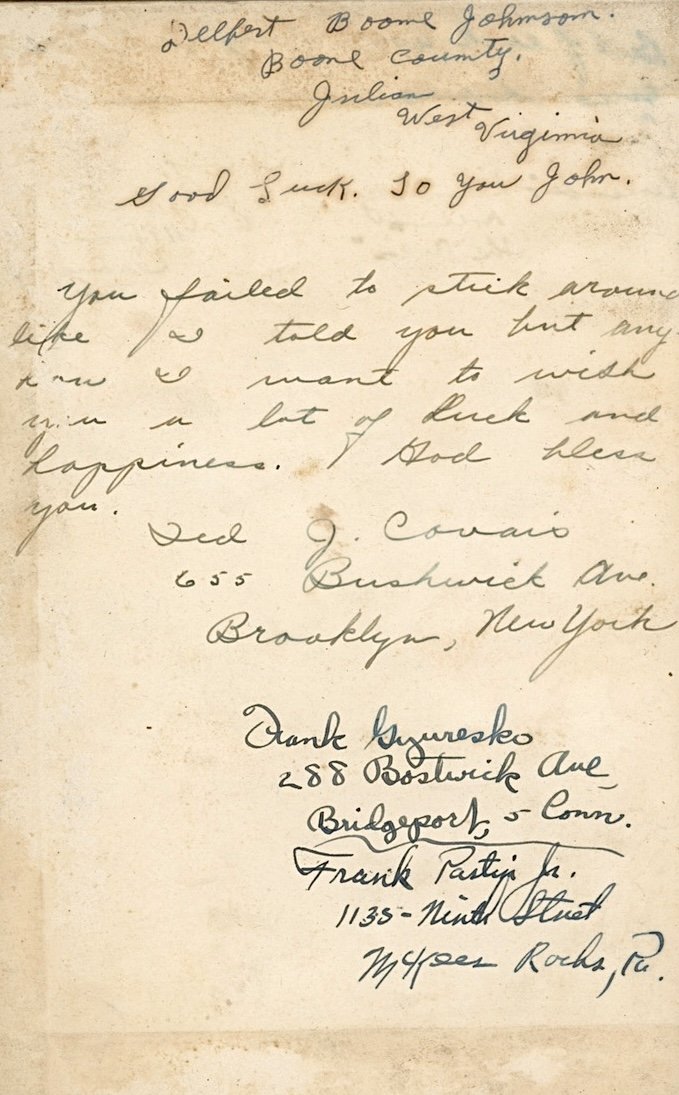 Delbert Boone Johnson.
Boone County.
Julian
West Virginia
Good Luck. To You John.
You failed to stick around
like I told you but any
how I want to wish
you a lot of luck and
happiness. God bless
you.
Ted J. Covais
655 Bushwick Ave.
Brooklyn, New York
Frank Gyuresko
288 Bostwick Ave
Bridgeport, 5 Conn.
Frank Jr.
1135-Ninth Street
McKees Rocks, Pa.